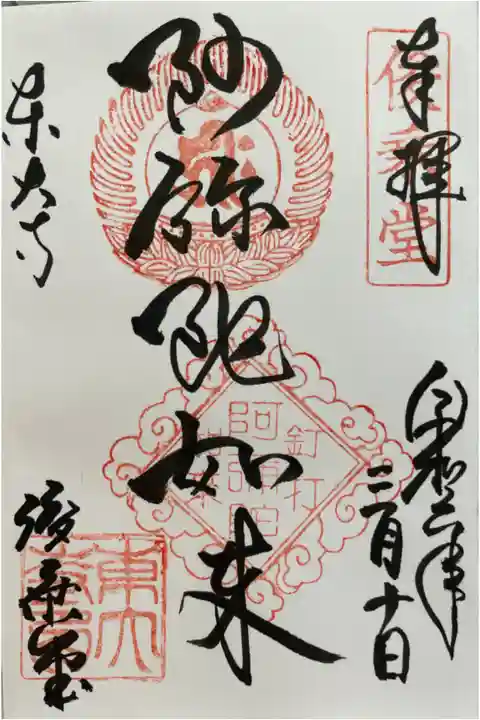 奉拝
俊乗堂
令和二年
三月十日
阿弥陀如来
釘打
阿弥陀
如来
東大寺
俊乗堂
東大
寺印